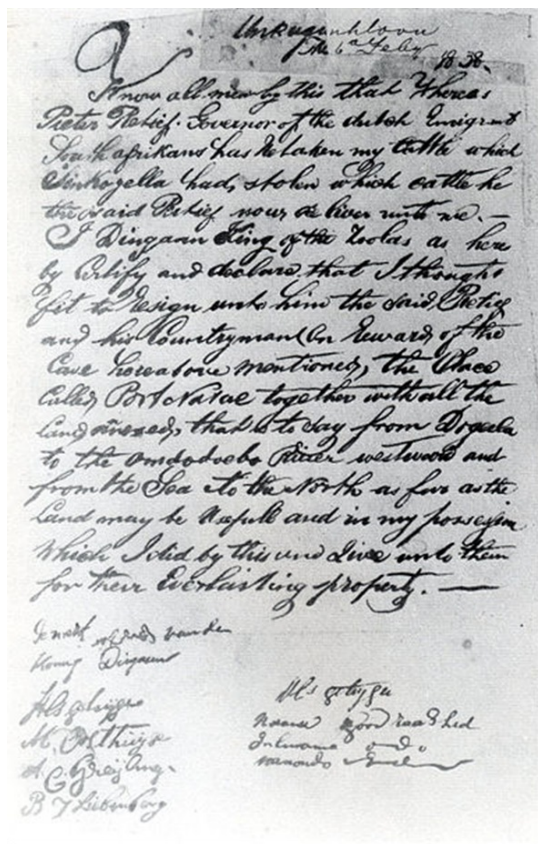 Unkunginhloovo
the 6th Feby 1838.
Know all men by this that Whereas
Pieter Retief Governor of the dutch Emigrant
South afrikans has Retaken my Cattle which
Sinkonyella had, stolen which cattle he
the said Retief now deliver unto me. —
I Dingaan King of the Zoolas as here
by Certify and declare that I thought
fit to Resign unto him the said, Retief
and his Countryman (On Reward, of the
Case hereabove mentioned, the Place
Called, Port Natal together with all the
Land annexed, that is to say from Dogeela
to the Omsoboebo River westward and
from the Sea to the North as far as the
Land may be Usefull and in my possession
Which I did by this and Give unto them
for their Everlasting property. —
De merk van den
Koning Dingaan
Als getuige
M. Oosthuyse
A. C. Greyling
B J Liebenberg
Als getuige
Moaro Groot raadslid
Juliwane do
Manondo